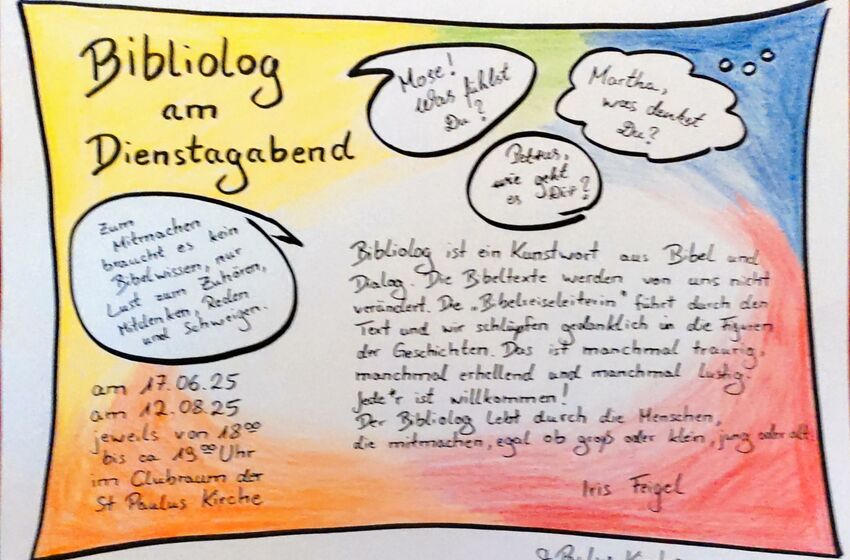 Bibliolog
am
Dienstagabend
Mose!
Was fühlst
Du?
Martha,
was denkst
Du?
Petrus,
wie geht
es Dir?
Zum
Mitmachen
braucht es kein
Bibelwissen, nur
Lust zum Zuhören,
Mitdenken, Reden
und Schweigen.
Bibliolog ist ein Kunstwort aus Bibel und
Dialog. Die Bibeltexte werden von uns nicht
verändert. Die „Bibelreiseleiterin" führt durch den
Text und wir schlüpfen gedanklich in die Figuren
der Geschichten. Das ist manchmal traurig,
manchmal erhellend und manchmal lustig.
Jede*r ist willkommen!
Der Bibliolog lebt durch die Menschen,
die mitmachen, egal ob groß oder klein, jung oder alt.
Iris Feigel
am 17.06.25
am 12.08.25
jeweils von 18⁰⁰
bis ca 19⁰⁰ Uhr
im Clubraum der
St Paulus Kirche